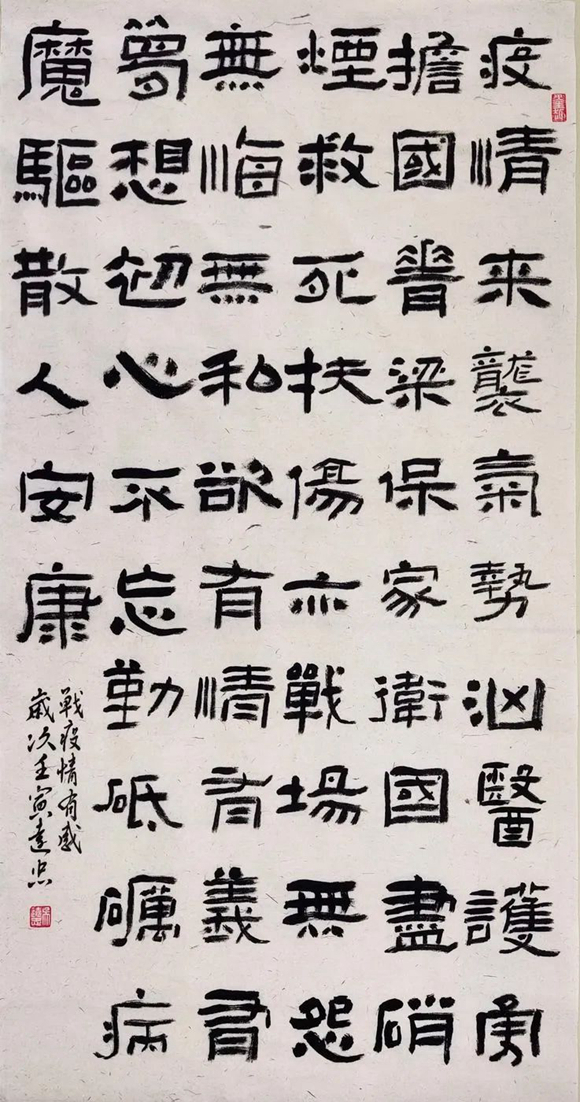 疫情來襲氣勢汹醫護勇
擔國脊梁保家衛國盡硝
煙救死扶傷亦戰場無怨
無悔無私欲有情有義有
夢想初心不忘勤砥礪病
魔驅散人安康
戰疫情有感
歲次壬寅達忠